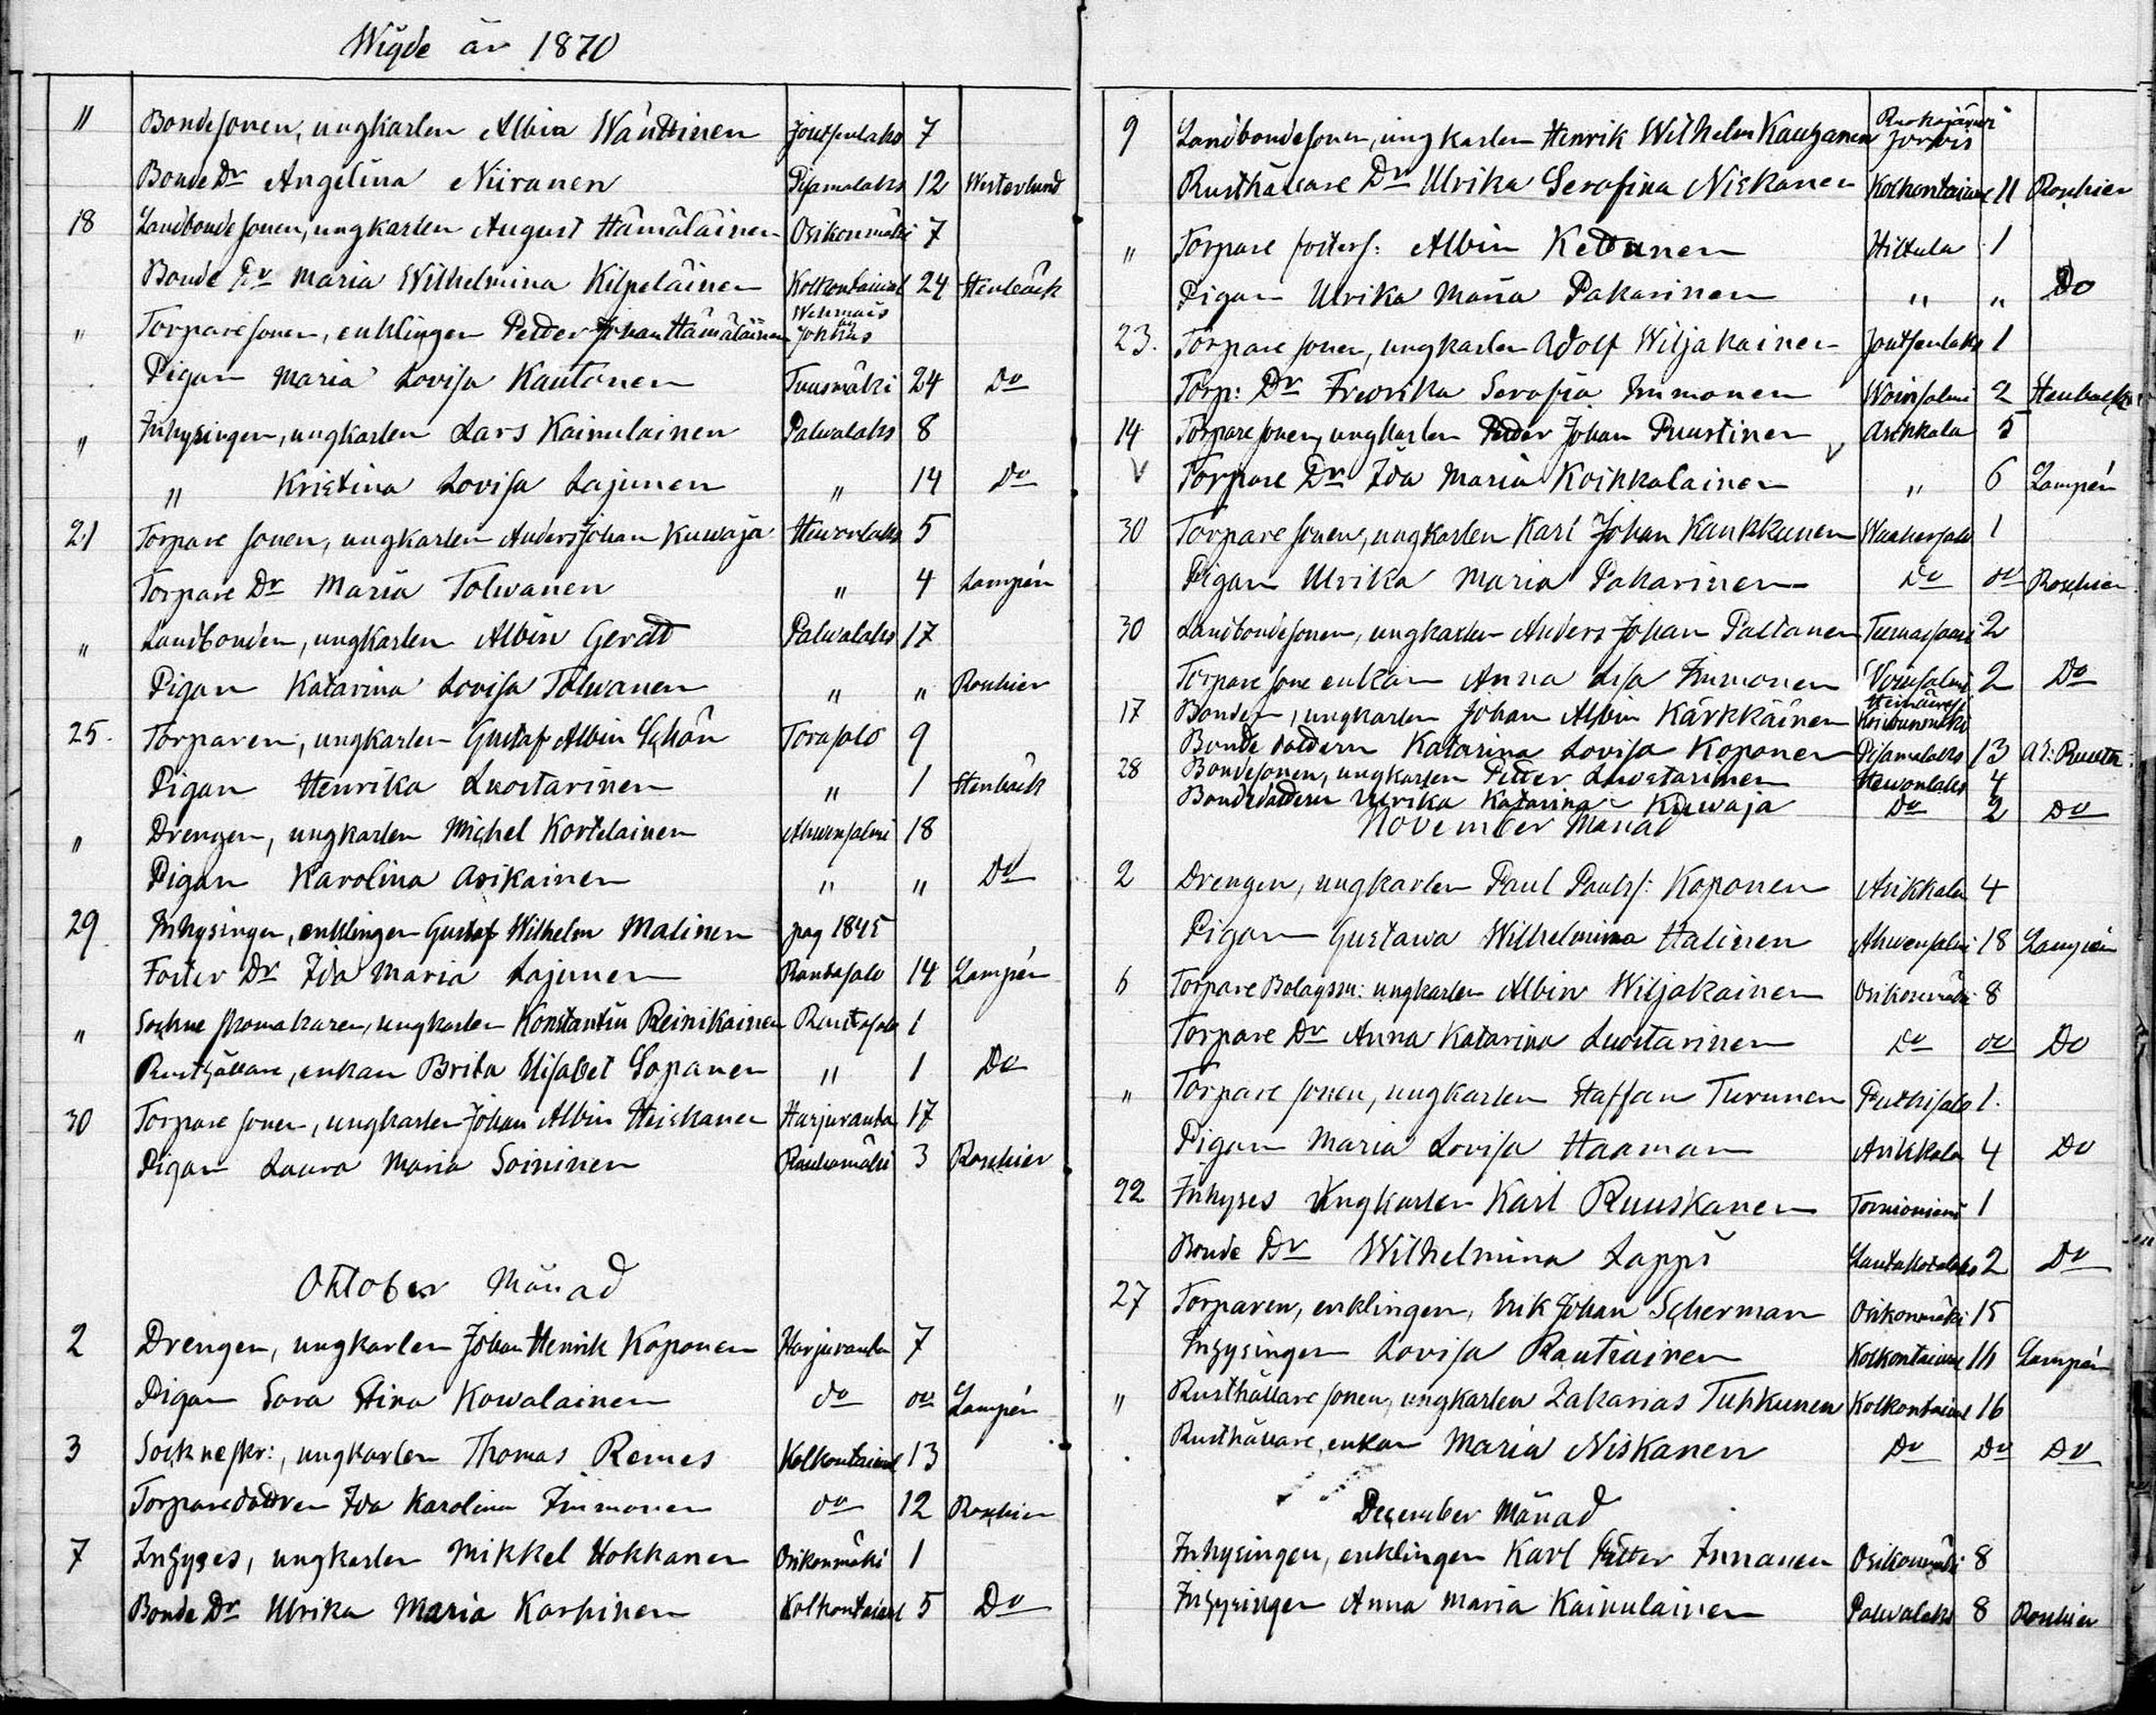 Wigde år 1870
11 Bondesonen, ungkarlen Albin Wänttinen Joutsenlaks 7
Bonde Dr Angelina Niiranen Pijamalaks 12 Westerlund
18 Landbondesonen, ungkarlen August Hämäläinen Osikonmäki 7
Bonde Dr Maria Wilhelmina Kilpeläinen Kolkontaival 24 Stenbäck
" Torparesonen, enklingen Petter Johan Hämäläinen Wehmais Jokkas
Pigan Maria Lovisa Kautonen Tuusmäki 24 Do
" Inhysingen, ungkarlen Lars Kainulainen Palvalaks 8
" Kristina Lovisa Lajunen " 14 Do
21 Torpare sonen, ungkarlen Anders Johan Kuwaja Heuronlaks 5
Torpare Dr Maria Tolwanen " 4 Lampén
" Landbonden, ungkarlen Albin Gerdt Palvalaks 17
Pigan Katarina Lovisa Tolwanen " " Roschier
25. Torparen, ungkarlen Gustaf Albin Schön Torasalo 9
Pigan Henrika Luostarinen " 1 Stenbäck
" Drengen, ungkarlen Michel Kortelainen Ahvensalmi 18
Pigan Karolina Asikainen " " Do
29 Inhysingen, enklingen Gustaf Wilhelm Malinen pag 1845
Foster Dr Ida Maria Lajunen Rantasalo 14 Lampén
" Sockne skomakaren, ungkarlen Konstantin Reinikainen Rantasalo 1
Rusthållare, enkan Brita Elisabet Sopanen " 1 Do
30 Torpare sonen, ungkarlen Johan Albin Heiskanen Harjuranta 17
Pigan Laura Maria Soininen Rauhamäki 3 Roschier
Oktober Månad
2 Drengen, ungkarlen Johan Henrik Koponen Harjuranta 7
Pigan Sara Stina Kowalainen do do Lampén
3 Sockneskr:, ungkarlen Thomas Remes Kolkontaival 13
Torparedottren Ida Karolina Immonen do 12 Roschier
7 Inhyses, ungkarlen Mikkel Hokkanen Osikonmäki 1
Bonde Dr Ulrika Maria Karhinen Kolkontaival 5 Do
9 Landbondesonen, ungkarlen Henrik Wilhelm Kauhanen Ruokojärvi Jorvis
Rusthållare Dr Ulrika Serafina Niskanen Kolkontaival 11 Roschier
" Torpare fosters: Albin Kettunen Hiltula 1
Pigan Ulrika Maria Pakarinen " " Do
23. Torpare sonen, ungkarlen Adolf Wiljakainen Joutsenlaks 1
Torp: Dr Fredrika Serafia Immonen Woinsalmi 2 Stenbäck
14 Torpare sonen, ungkarlen Petter Johan Puustinen Asikkala 5
V Torpare Dr Ida Maria Koikkalainen " 6 Lampén
30 Torpare sonen, ungkarlen Karl Johan Kaukkunen Waahersalo 1
Pigan Ulrika Maria Pakarinen Do do Roschier
30 Landbondesonen, ungkarlen Anders Johan Paltanen 2
Torpare sone enkan Anna Lisa Immonen Voinsalmi 2 Do
17 Bonden, ungkarlen Johan Albin Kärkkäinen Heinäves Koivunmäki
Bonde dottern Katarina Lovisa Koponen Pijamalaks 13
28 Bondesonen, ungkarlen Petter Luostarinen Heuronlaks 4
Bondedottern Ulrika Katarina Kuwaja Do 2 Do
November Månad
2 Drengen, ungkarlen Paul Paulss: Koponen Asikkala 4
Pigan Gustava Wilhelmina Halinen Ahvensalmi 18 Lampén
6 Torpare Bolagsm: ungkarlen Albin Wiljakainen Osikonmäki 8
Torpare Dr Anna Katarina Luostarinen Do do Do
" Torpare sonen, ungkarlen Staffan Turunen Putkisalo 1.
Pigan Maria Lovisa Haaman Asikkala 4 Do
22 Inhyses Ungkarlen Karl Ruuskanen Tornioniemi 1
Bonde Dr Wilhelmina Lappi Lautakotalaks 2 Do
27 Torparen, enklingen, Erik Johan Scherman Osikonmäki 15
Inhysingen Lovisa Rautiainen Kolkontaival 16 Lampén
" Rusthållare sonen, ungkarlen Zakarias Tuhkunen Kolkontaival 16
Rusthållare enkan Maria Niskanen Do Do Do
December Månad
Inhysingen, enklingen Karl Petter Innanen Osikonmäki 8
Inhysingen Anna Maria Kainulainen Palvalaks 8 Roschier